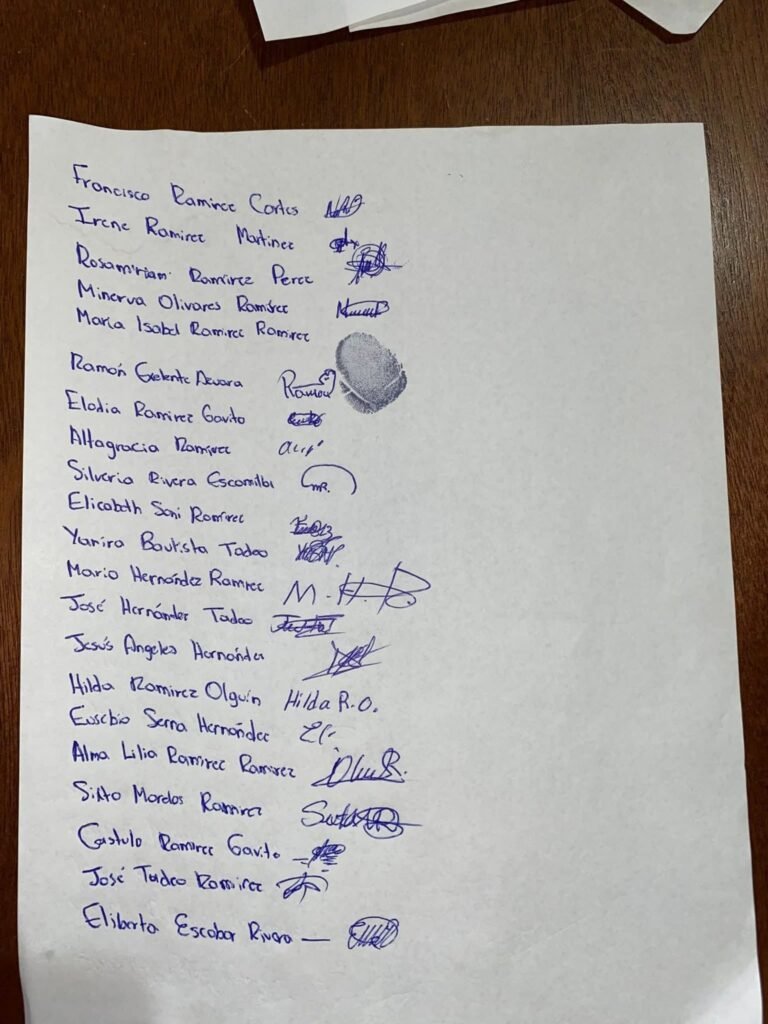 Francisco Ramirez Cortes
Irene Ramirez Martinez
Rosamiriam Ramirez Perez
Minerva Olivares Ramírez
María Isabel Ramirez Ramirez
Ramón Ramon
Elodia Ramirez Gavito
Altagracia Ramírez
Silveria Rivera Escamilla MR.
Elizabeth Soni Ramírez
Yanira Bautista Tadeo
Mario Hernández Ramirez M.H.R.
José Hernández Tadeo
Jesús Angeles Hernández
Hilda Ramirez Olguín Hilda R.O.
Eusebio Serna Hernández
Alma Lilia Ramirez Ramirez
Sixto Ramirez
Castulo Ramirez Gavito
José Tadeo Ramirez
Eliberta Escobar Rivera —